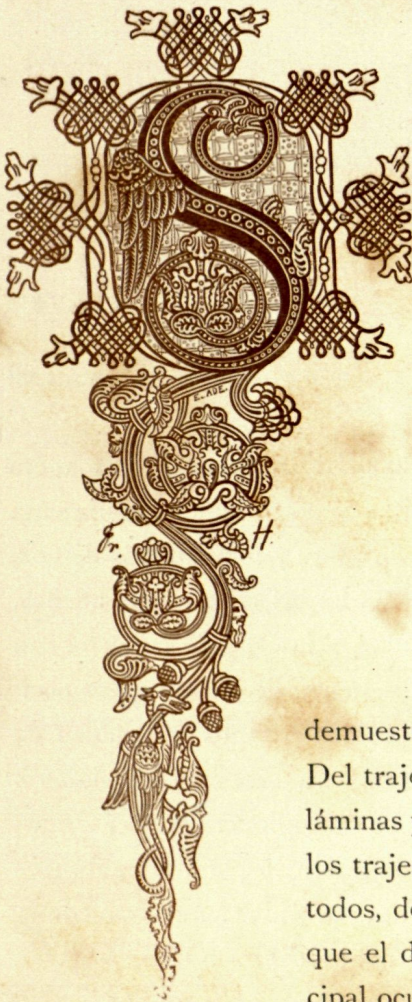 S
E. ADE.
Fr. H.
demuest
Del traje
láminas
los traje
todos, d
que el d
cipal ocu